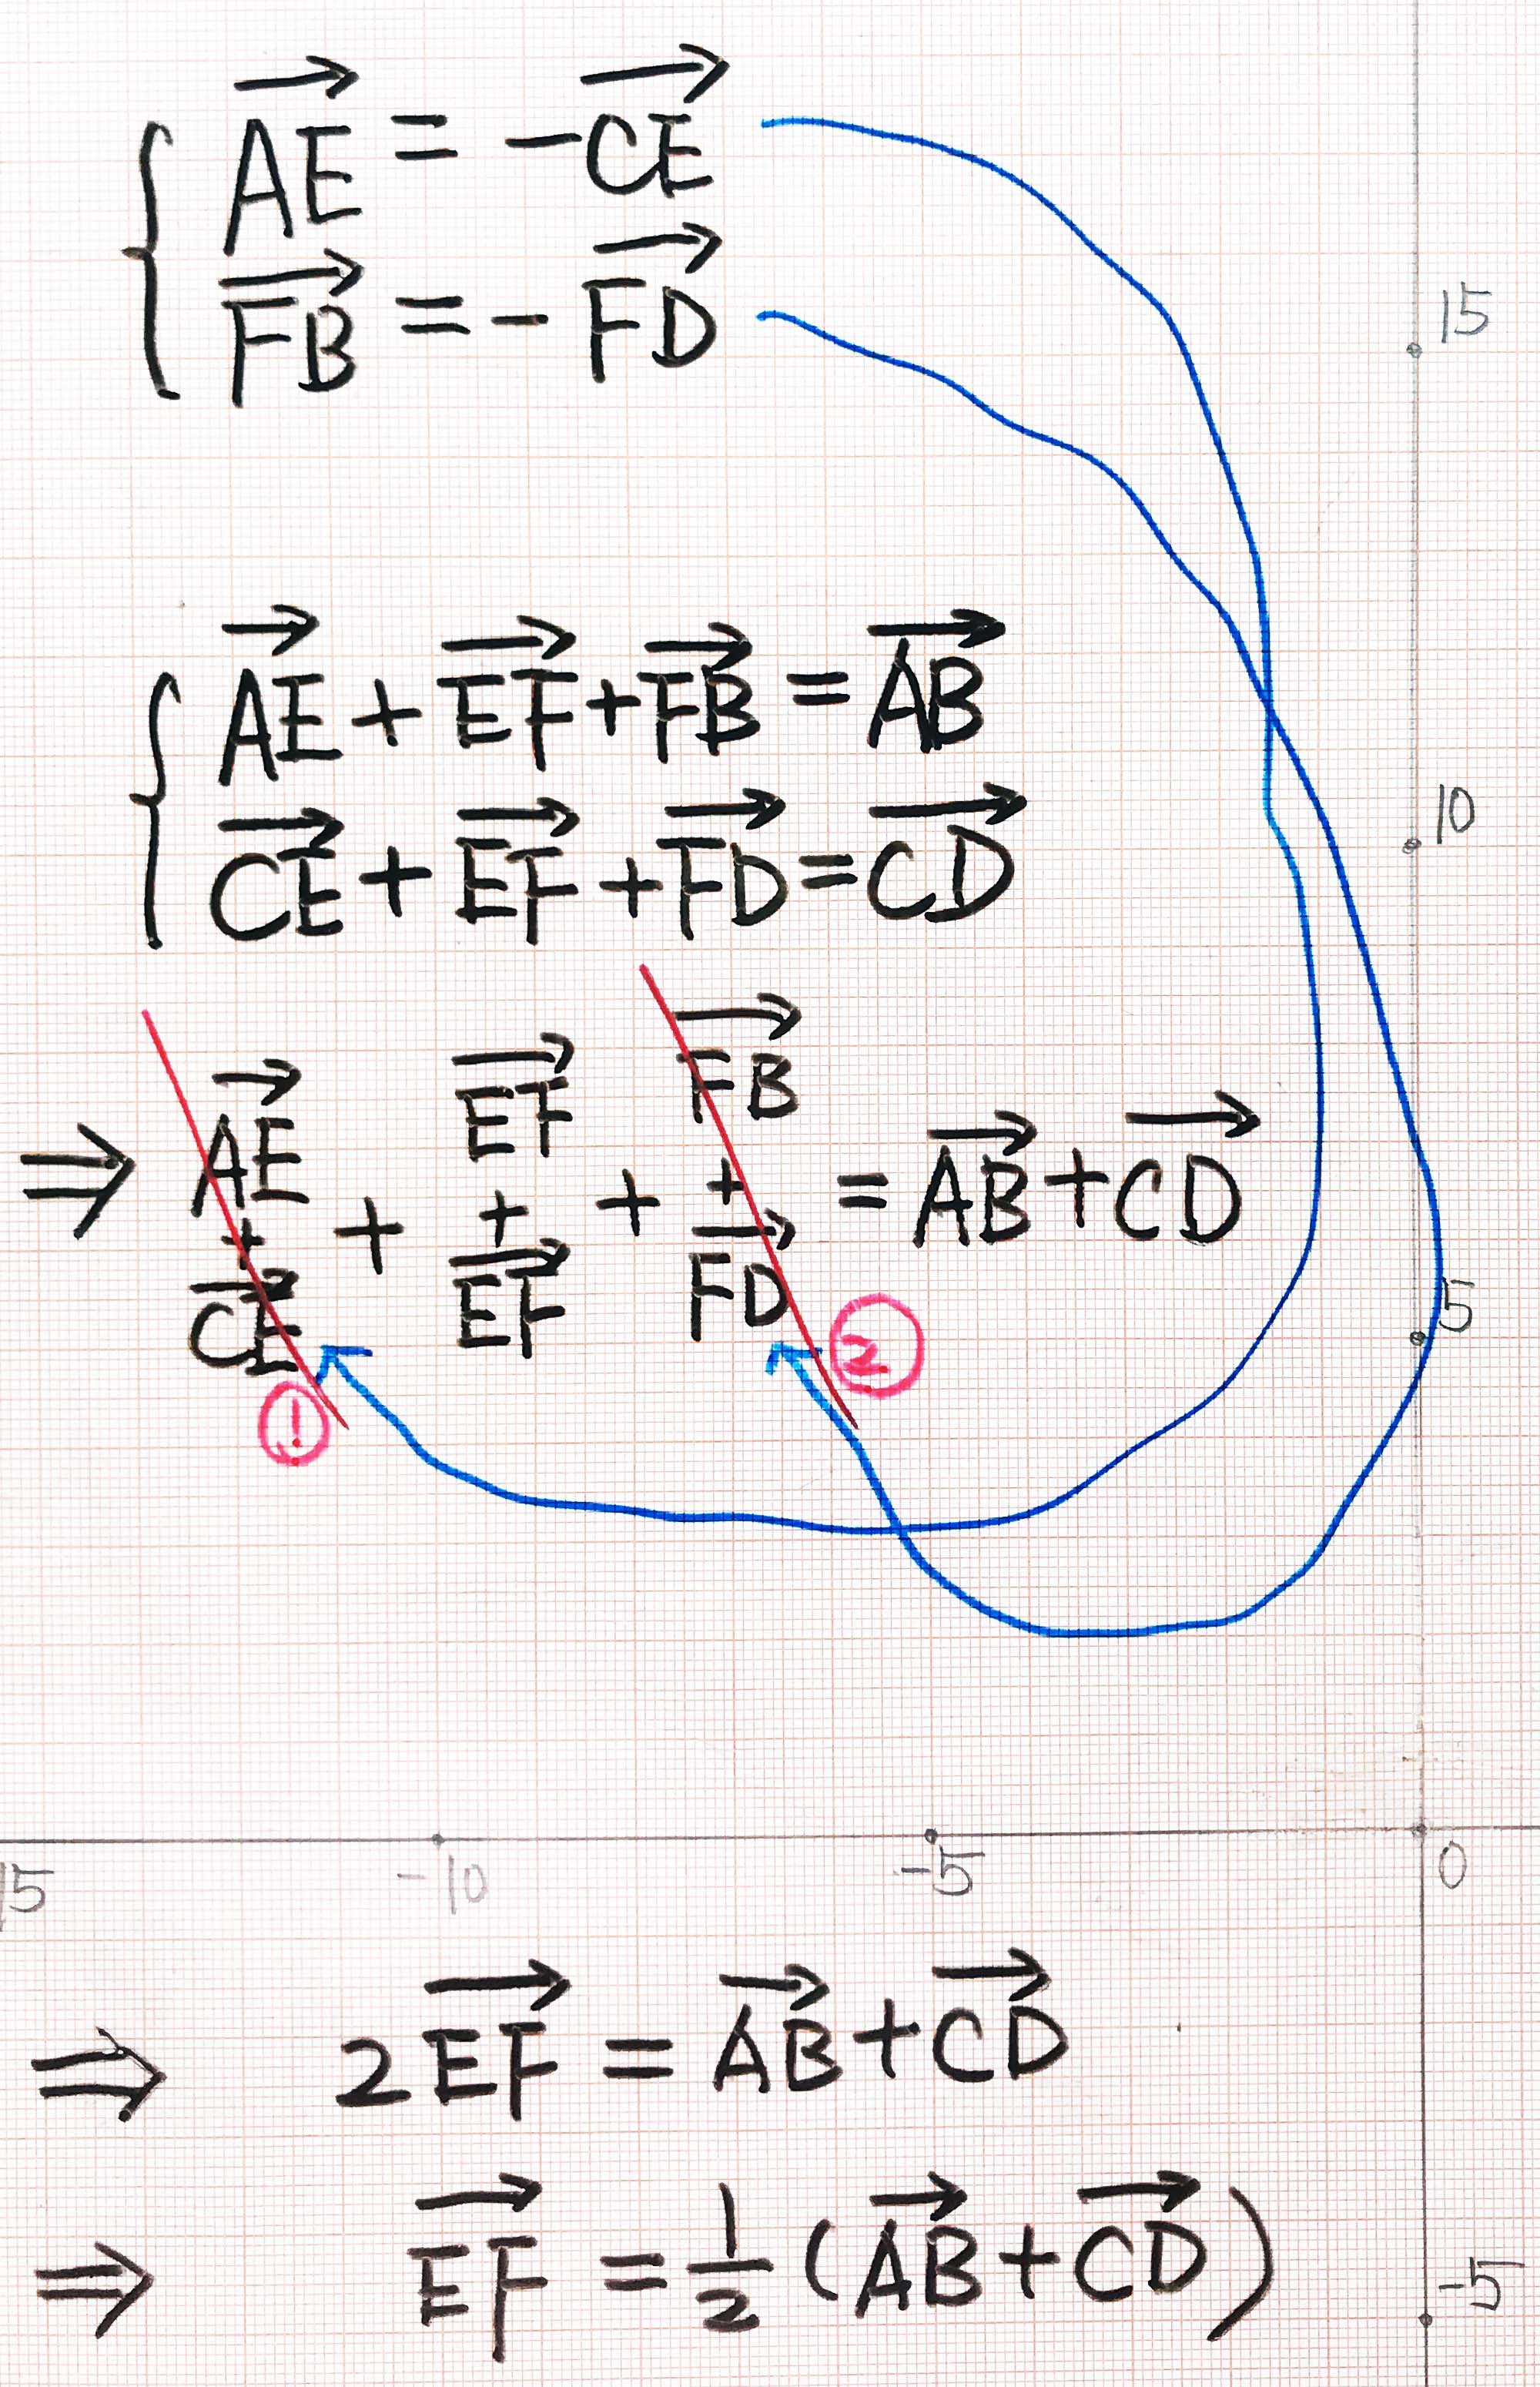 { \overrightarrow{AE} = -\overrightarrow{CE}
\overrightarrow{FB} = -\overrightarrow{FD}
15
{ \overrightarrow{AE} + \overrightarrow{EF} + \overrightarrow{FB} = \overrightarrow{AB}
10
\overrightarrow{CE} + \overrightarrow{EF} + \overrightarrow{FD} = \overrightarrow{CD}
⇒ \overrightarrow{AE} + \overrightarrow{CE} + \overrightarrow{EF} + \overrightarrow{EF} + \overrightarrow{FB} + \overrightarrow{FD} = \overrightarrow{AB} + \overrightarrow{CD}
5
① ②
15 -10 -5 0
⇒ 2\overrightarrow{EF} = \overrightarrow{AB} + \overrightarrow{CD}
⇒ \overrightarrow{EF} = \frac{1}{2} (\overrightarrow{AB} + \overrightarrow{CD})
-5